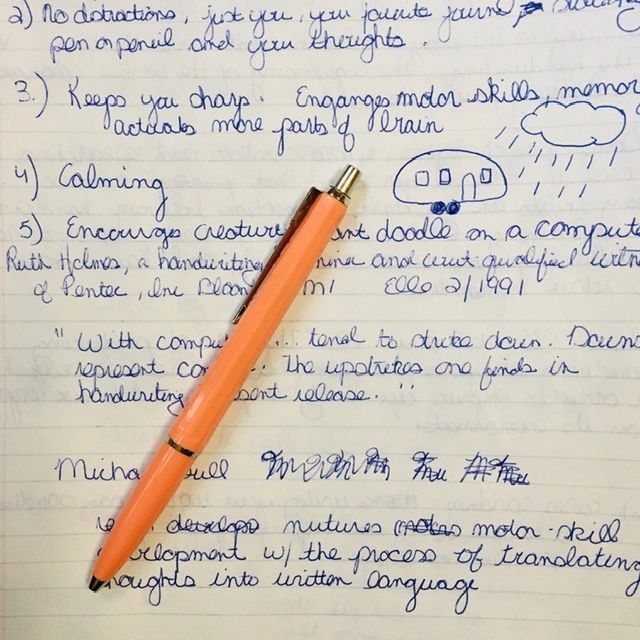 2) No distractions, just you, you favorite journ
pen or pencil and you thoughts.
3.) Keeps you sharp. Enganges motor skills, memor
activates more parts of brain
4) Calming
5) Encourage creat doodle on a compute
Ruth Holmes, a handwriting and court-qualified witn
of Pentec, Inc Bloom MI Elle 2/1991
"With compu tend to strike down. Down
represent co. The upstrokes one finds in
handwriting sent release."
Micha ull
develops nutures motor-skill
velopment w/ the process of translating
houghts into written language